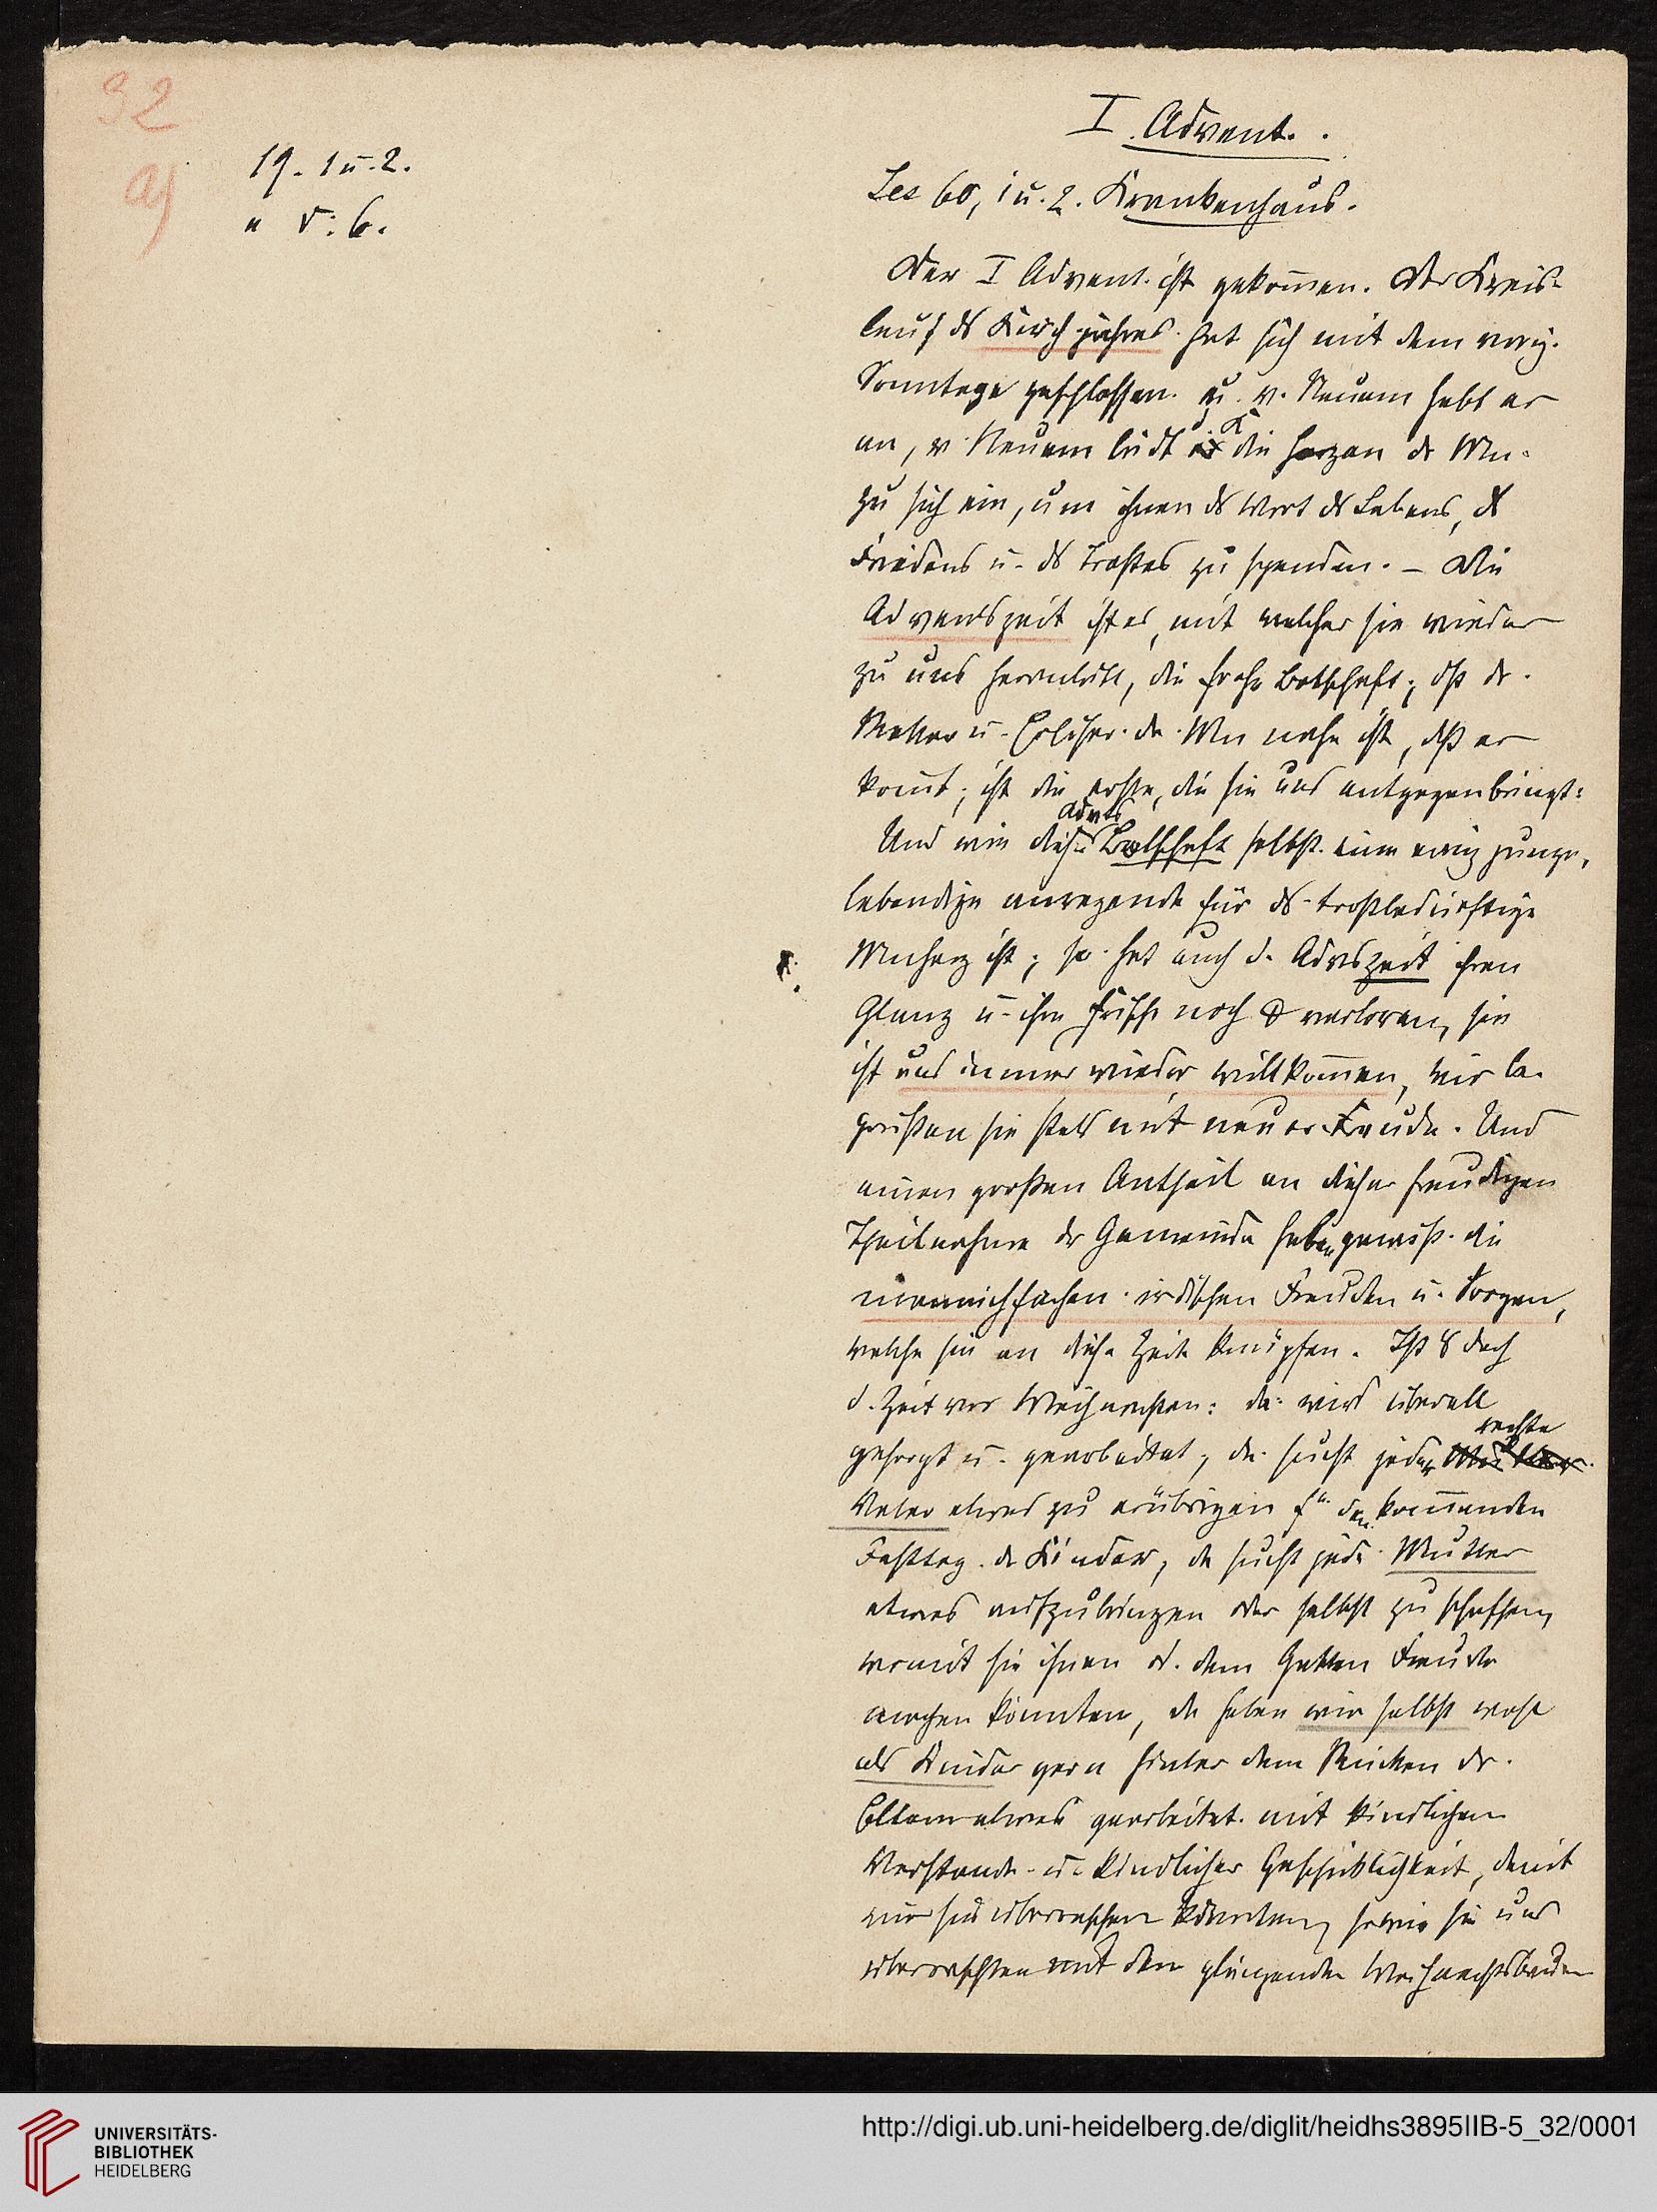 32
a)
19. 1 u. 2.
" V: 6.
I. Advent.
Jes 60, 1 u. 2. Krankenhaus.
Der I Advent ist gekom̅en. Der Kreis-
lauf ds Kirchjahres hat sich mit dem vorig.
Sonntage geschlossen u. v. Neuem hebt er
an, v. Neuem lädt die K die Herzen dr Mn.
zu sich ein, um ihnen ds Wort ds Lebens, ds
Friedens u. ds Trostes zu spenden. – Die
Adventszeit ist es, mit welcher sie wieder
zu uns herantritt, die frohe Botschaft, dß dr
Retter u. Erlöser dr Mn nahe ist, dß er
kom̅t, ist die erste, die sie uns entgegenbringt.
Und wie diese Advts Botschaft selbst eine ewig junge,
lebendige anregende für ds trostbedürftige
Mnherz ist, so hat auch d. Advszeit ihren
Glanz u. ihre Frische noch verloren, sie
ist uns immer wieder willkom̅en, wir be-
grüßen sie stets mit neuer Freude. Und
einen großen Antheil an dieser freudigen
Theilnahme dr Gemeinde haben gewiß die
mannichfachen irdischen Freuden u. Sorgen,
welche sich an diese Zeit knüpfen. Ist doch
d. Zeit vor Weihnachten: da wird überall
gesorgt u. gearbeitet, da sucht jeder rechte
Vater etwas zu erübrigen f. den kom̅enden
Festtag dr Kinder, da sucht jede Mutter
etwas aufzubringen oder selbst zu schaffen,
womit sie ihnen od. dem Gatten Freude
machen könnten, da haben wir selbst wohl
als Kinder gern hinter dem Rücken dr
Eltern etwas gearbeitet mit kindlichem
Verstande u. kindlicher Geschicklichkeit, damit
wir sie überraschen könnten, sowie sie uns
überraschten mit dem glänzenden Weihnachtsbaum
UNIVERSITÄTS-
BIBLIOTHEK
HEIDELBERG
http://digi.ub.uni-heidelberg.de/diglit/heidhs3895IIB-5_32/0001